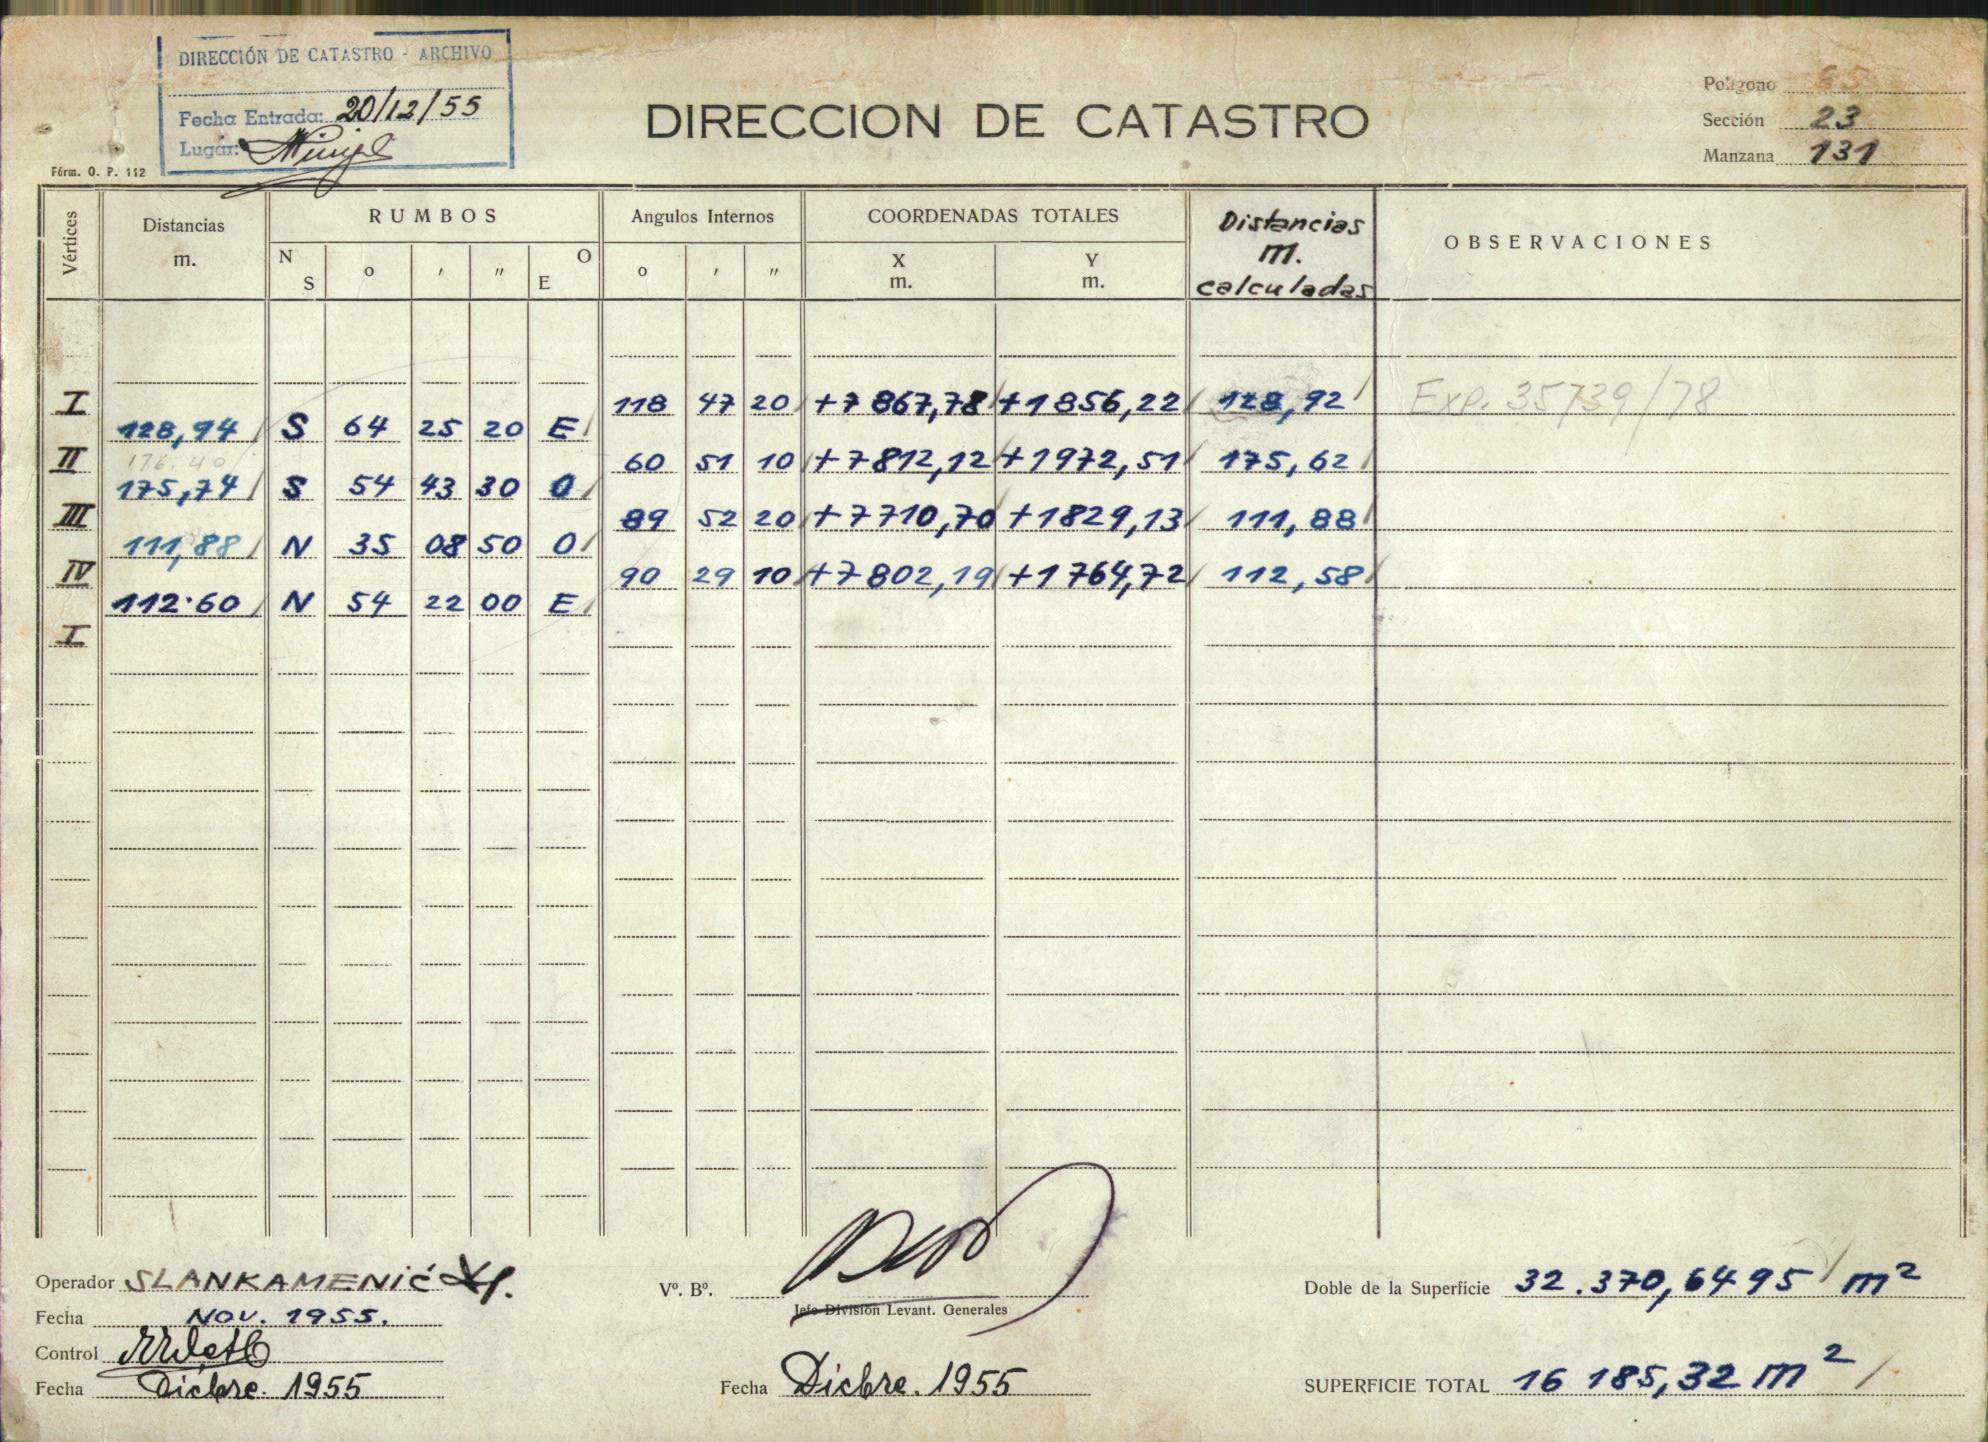 DIRECCIÓN DE CATASTRO - ARCHIVO
Fecha Entrada: 20/12/55
Lugar:
Fórm. O. P. 112
DIRECCION DE CATASTRO
Polígono 65
Sección 23
Manzana 131
Vértices Distancias m. RUMBOS Angulos Internos COORDENADAS TOTALES Distancias m. calculadas OBSERVACIONES
N S o ′ ″ E O o ′ ″ X m. Y m.
I 118 47 20 +7867,78 +1856,22 128,92 Exp. 35739/78
128,94 S 64 25 20 E
II 60 51 10 +7812,12 +1972,51 175,62
176.40
175,74 S 54 43 30 O
III 89 52 20 +7710,70 +1829,13 111,88
111,88 N 35 08 50 O
IV 90 29 10 +7802,19 +1764,72 112,58
112.60 N 54 22 00 E
I
Operador SLANKAMENIĆ
Fecha NOV. 1955.
Control
Fecha Dicbre. 1955
Vº. Bº.
Jefe División Levant. Generales
Fecha Dicbre. 1955
Doble de la Superficie 32.370,6495 m²
SUPERFICIE TOTAL 16 185,32 m²